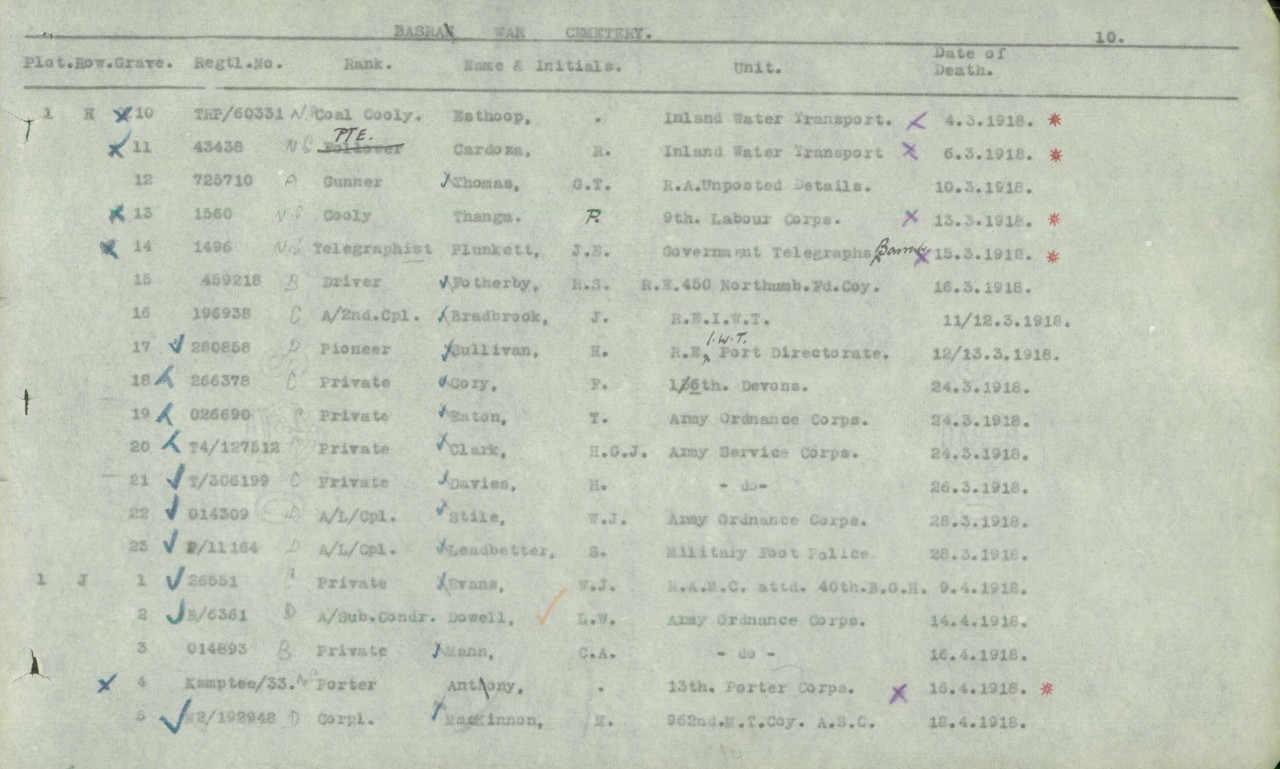 BASRAH WAR CEMETERY. 10.
Plot. Row. Grave. Regtl.No. Rank. Name & Initials. Unit. Date of Death.
1 H 10 THP/60331 Coal Cooly. Esthoop, . Inland Water Transport. 4.3.1918.
PTE.
11 43438 Follower Cardoza, R. Inland Water Transport 6.3.1918.
12 725710 A Gunner Thomas, G.T. R.A.Unposted Details. 10.3.1918.
13 1560 Cooly Thanga. P. 9th. Labour Corps. 13.3.1918.
14 1496 Telegraphist Plunkett, J.E. Government Telegraphs Basrah 15.3.1918.
15 459218 B Driver Fotherby, R.S. R.E.450 Northumb.Fd.Coy. 16.3.1918.
16 196938 C A/2nd.Cpl. Bradbrook, J. R.E.I.W.T. 11/12.3.1918.
I.W.T.
17 280858 D Pioneer Sullivan, H. R.E. Port Directorate. 12/13.3.1918.
18 266378 C Private Cory, F. 1/6th. Devons. 24.3.1918.
19 026690 Private Eaton, T. Army Ordnance Corps. 24.3.1918.
20 T4/127512 Private Clark, H.G.J. Army Service Corps. 24.3.1918.
21 T/306199 C Private Davies, H. - do- 26.3.1918.
22 014309 D A/L/Cpl. Stile, W.J. Army Ordnance Corps. 28.3.1918.
23 P/11164 D A/L/Cpl. Leadbetter, S. Military Foot Police 28.3.1918.
1 J 1 26551 Private Evans, W.J. R.A.M.C. attd. 40th.B.G.H. 9.4.1918.
2 B/6361 D A/Sub.Condr. Dowell, L.W. Army Ordnance Corps. 14.4.1918.
3 014893 B Private Mann, C.A. - do - 16.4.1918.
4 Kamptee/33. Porter Anthony, . 13th. Porter Corps. 16.4.1918.
5 M2/192948 D Corpl. MacKinnon, M. 962nd.M.T.Coy. A.S.C. 18.4.1918.